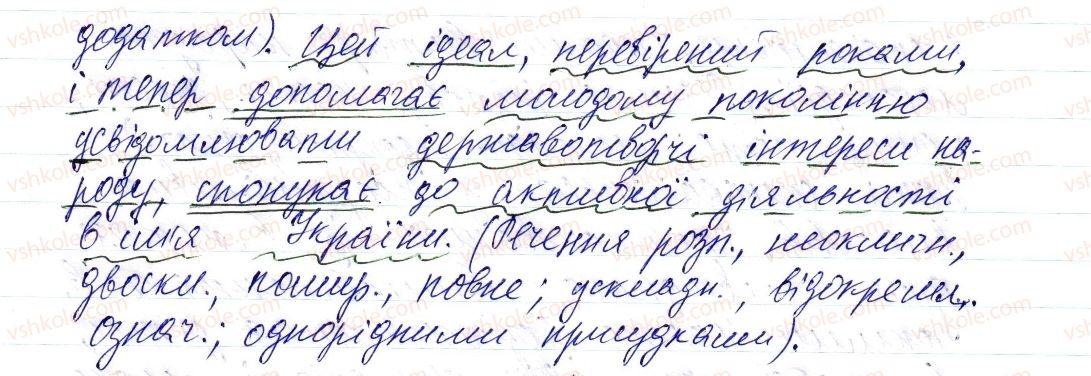 додатком). Цей ідеал, перевірений роками,
і тепер допомагає молодому поколінню
усвідомлювати державотворчі інтереси на-
роду, спонукає до активної діяльності
в ім'я України. (Речення розп., неокличн.,
двоскл., пошир., повне; ускладн., відокремл.
означ.; однорідними присудками).